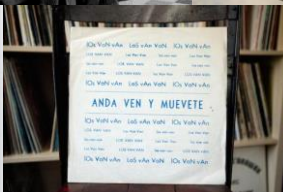 lOs VaN vAn LoS vAn VaN lOs VaN vAn
LOS VAN VAN Los Van Van LOS VAN VAN
los van van LOS VAN VAN los van van
Los Van Van los van van Los Van Van
lOs VaN vAn LoS vAn VaN lOs VaN vAn
ANDA VEN Y MUEVETE
lOs VaN vAn LoS vAn VaN lOs VaN vAn
los van van Los Van Van los van van
LOS VAN VAN los van van LOS VAN VAN
Los Van Van LOS VAN VAN Los Van Van
lOs VaN vAn LoS vAn VaN lOs VaN vAn